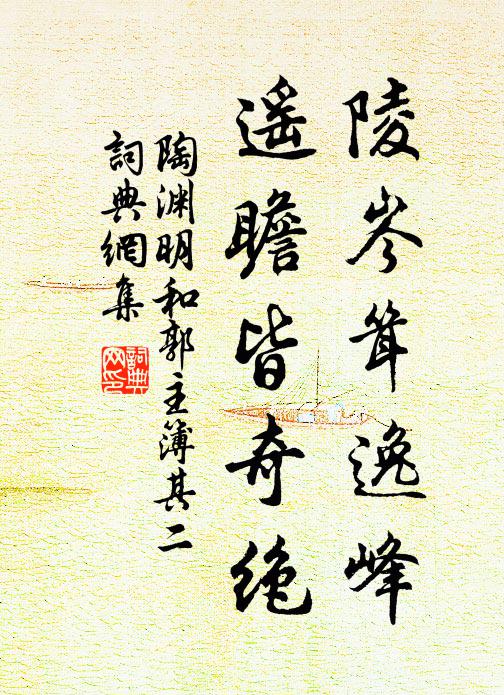 陵岑耸逸峰
遥瞻皆奇绝
陶渊明和郭主簿其二
词典网集
词典网印